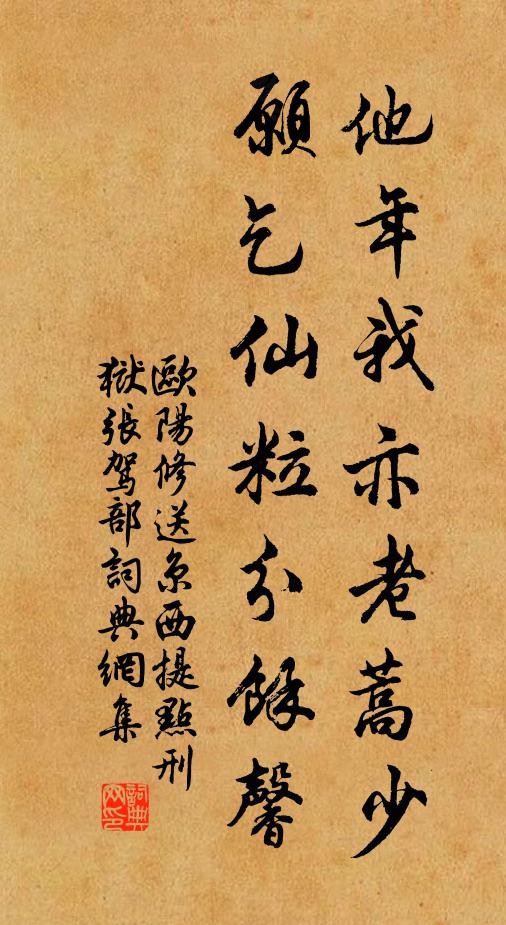 他年我亦老蒿少
願乞仙粒分餘馨
歐陽修送京西提點刑
獄張駕部詞典網集